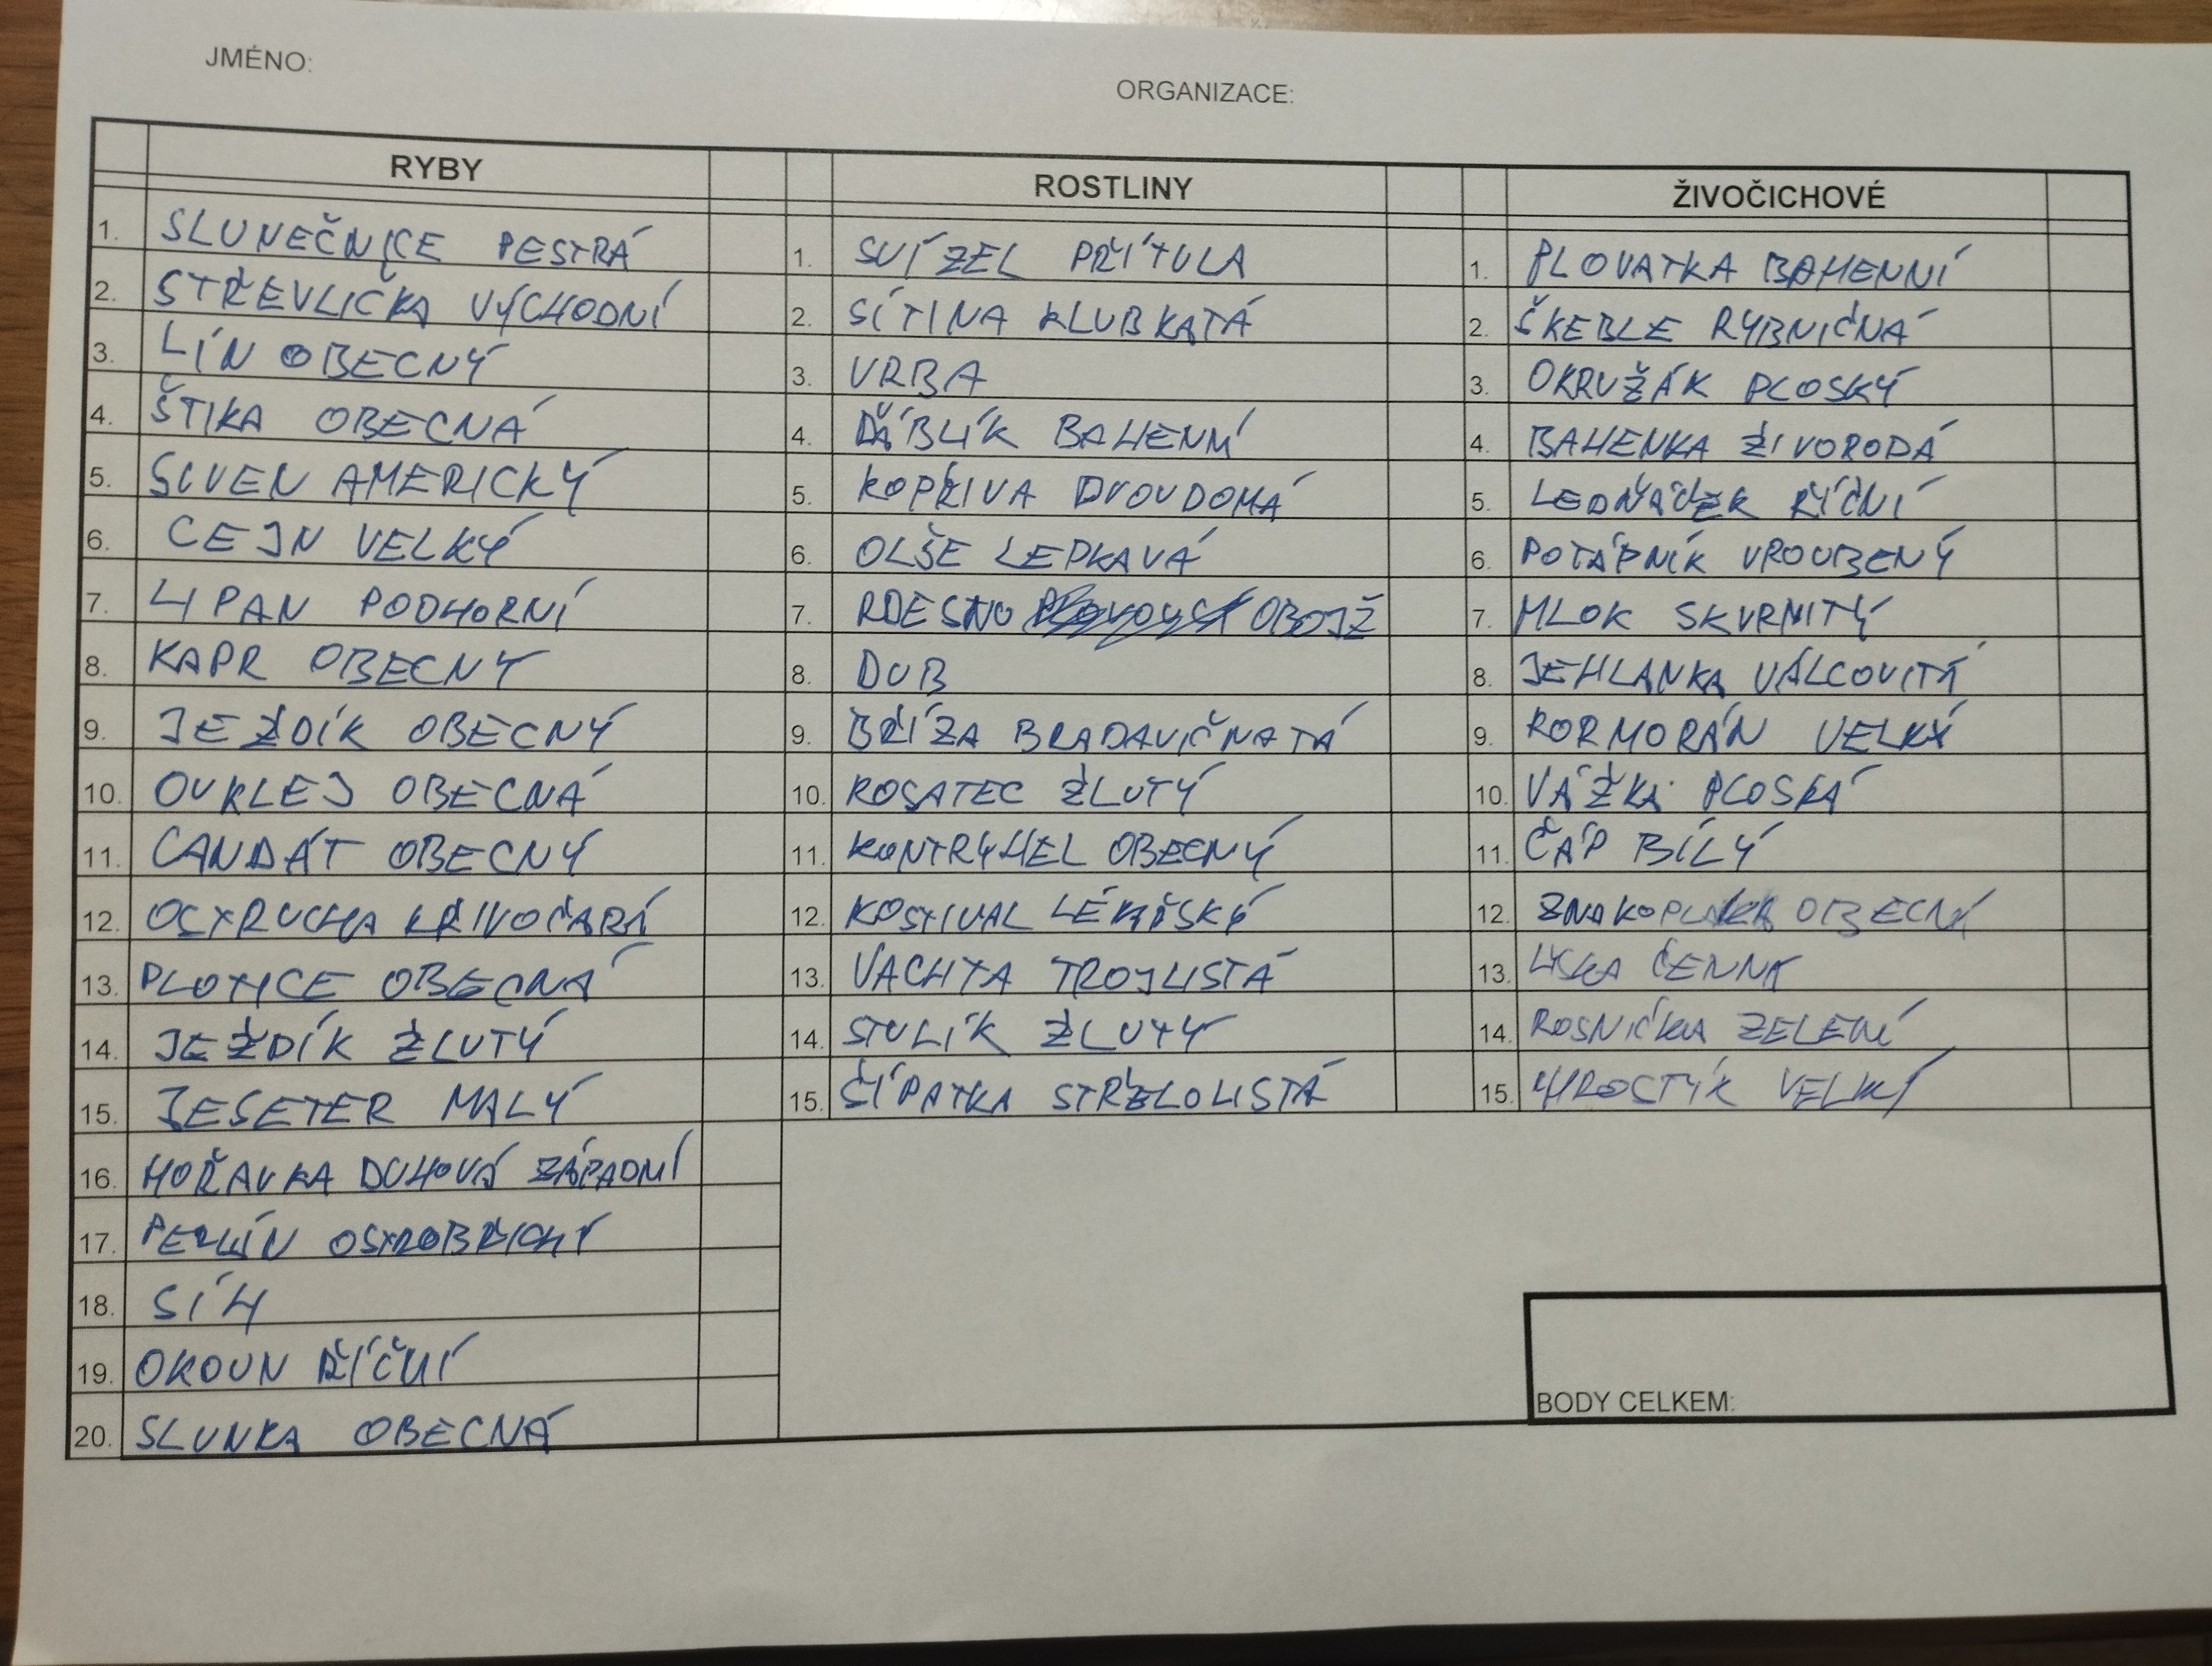 JMÉNO:
ORGANIZACE:
RYBY
1. SLUNEČNICE PESTRÁ
2. STŘEVLIČKA VÝCHODNÍ
3. LÍN OBECNÝ
4. ŠTIKA OBECNÁ
5. SIVEN AMERICKÝ
6. CEJN VELKÝ
7. LIPAN PODHORNÍ
8. KAPR OBECNÝ
9. JEŽDÍK OBECNÝ
10. OUKLEJ OBECNÁ
11. CANDÁT OBECNÝ
12. OSTRUCHA KŘIVOČARÁ
13. PLOTICE OBECNÁ
14. JEŽDÍK ŽLUTÝ
15. JESETER MALÝ
16. HOŘAVKA DUHOVÁ ZÁPADNÍ
17. PERLÍN OSTROBŘICHÝ
18. SÍH
19. OKOUN ŘÍČNÍ
20. SLUNKA OBECNÁ
ROSTLINY
1. SVÍZEL PŘÍTULA
2. SÍTINA KLUBKATÁ
3. VRBA
4. ĎÁBLÍK BAHENNÍ
5. KOPŘIVA DVOUDOMÁ
6. OLŠE LEPKAVÁ
7. RDESNO OBOJŽ
8. DUB
9. BŘÍZA BRADAVIČNATÁ
10. KOSATEC ŽLUTÝ
11. KONTRYHEL OBECNÝ
12. KOSTIVAL LÉKAŘSKÝ
13. VACHTA TROJLISTÁ
14. STULÍK ŽLUTÝ
15. ŠÍPATKA STŘELOLISTÁ
ŽIVOČICHOVÉ
1. PLOVATKA BAHENNÍ
2. ŠKEBLE RYBNIČNÁ
3. OKRUŽÁK PLOSKÝ
4. BAHENKA ŽIVORODÁ
5. LEDŇÁČEK ŘÍČNÍ
6. POTÁPNÍK VROUBENÝ
7. MLOK SKVRNITÝ
8. JEHLANKA VÁLCOVITÁ
9. KORMORÁN VELKÝ
10. VÁŽKA PLOSKÁ
11. ČÁP BÍLÝ
12. ZNAKOPLAVKA OBECNÁ
13. LYSKA ČERNÁ
14. ROSNIČKA ZELENÁ
15. CHROSTÍK VELKÝ
BODY CELKEM: